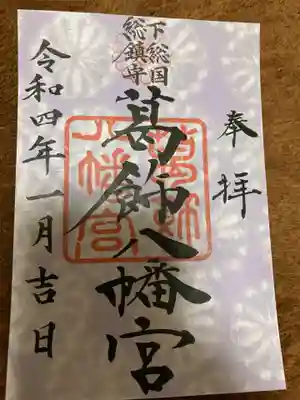 奉拝
下総国
総鎮守
葛飾八幡宮
葛飾
八幡宮
令和四年一月吉日